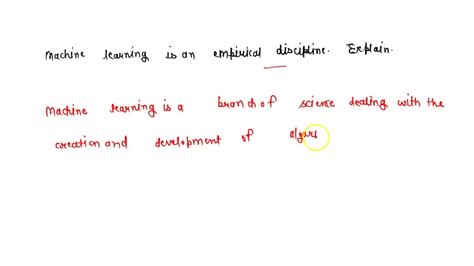 Machine learning is an empirical discipline. Explain.
Machine learning is a branch of science dealing with the
creation and development of algors